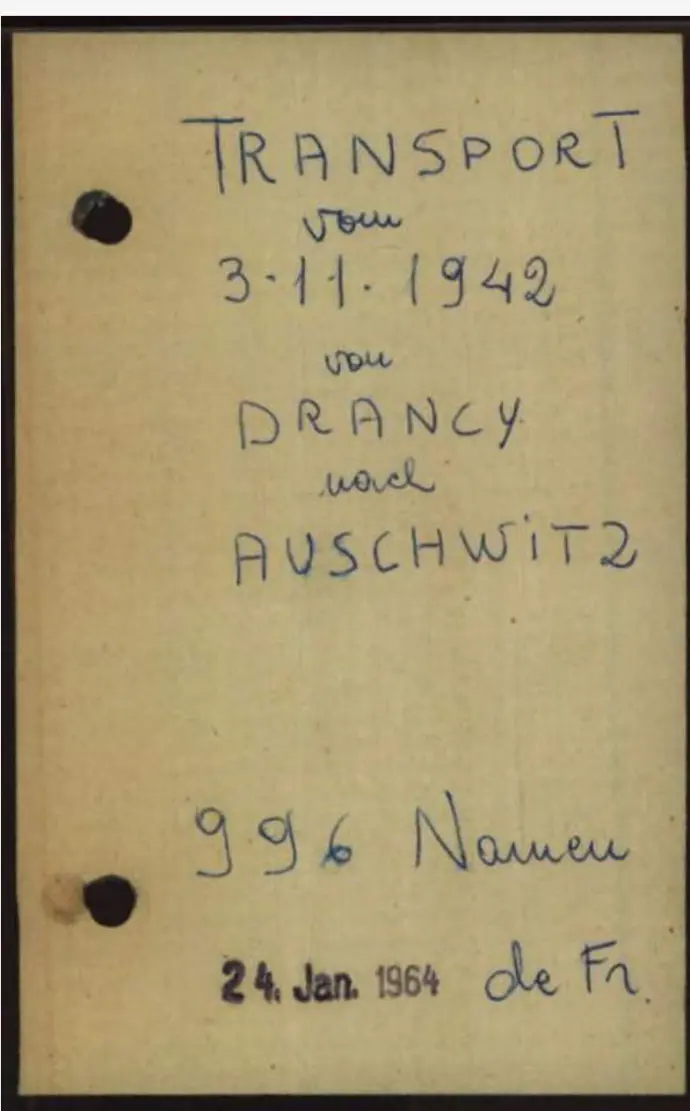 TRANSPORT
vom
3.11.1942
von
DRANCY
nach
AUSCHWITZ
996 Namen
24. Jan. 1964 de Fr.